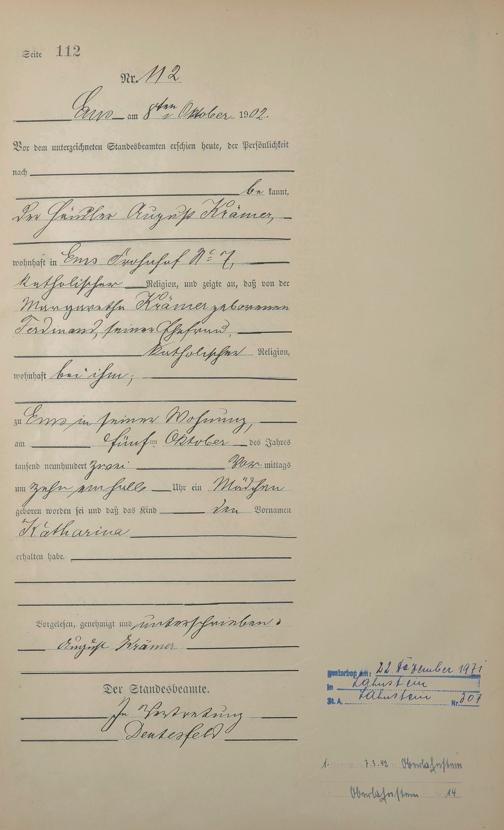 Seite 112
Nr. 112
Ems am 8ten Oktober 1902.
Vor dem unterzeichneten Standesbeamten erschien heute, der Persönlichkeit
nach
be kannt,
Der Händler August Krämer,
wohnhaft in Ems Frohnhof No 7,
katholischer Religion, und zeigte an, daß von der
Margarethe Krämer geborenen
Ferdinand, seiner Ehefrau,
katholischer Religion,
wohnhaft bei ihm,
zu Ems in seiner Wohnung,
am fünften Oktober des Jahres
tausend neunhundert zwei Vor mittags
um zehn einhalb Uhr ein Mädchen
geboren worden sei und daß das Kind den Vornamen
Katharina
erhalten habe.
Vorgelesen, genehmigt und unterschrieben:
August Krämer
Der Standesbeamte.
In Vertretung
gestorben am: 22 Dezember 1971
in Lahnstein
St. A. Lahnstein Nr. 307
1. Oberlahnstein
Oberlahnstein 14